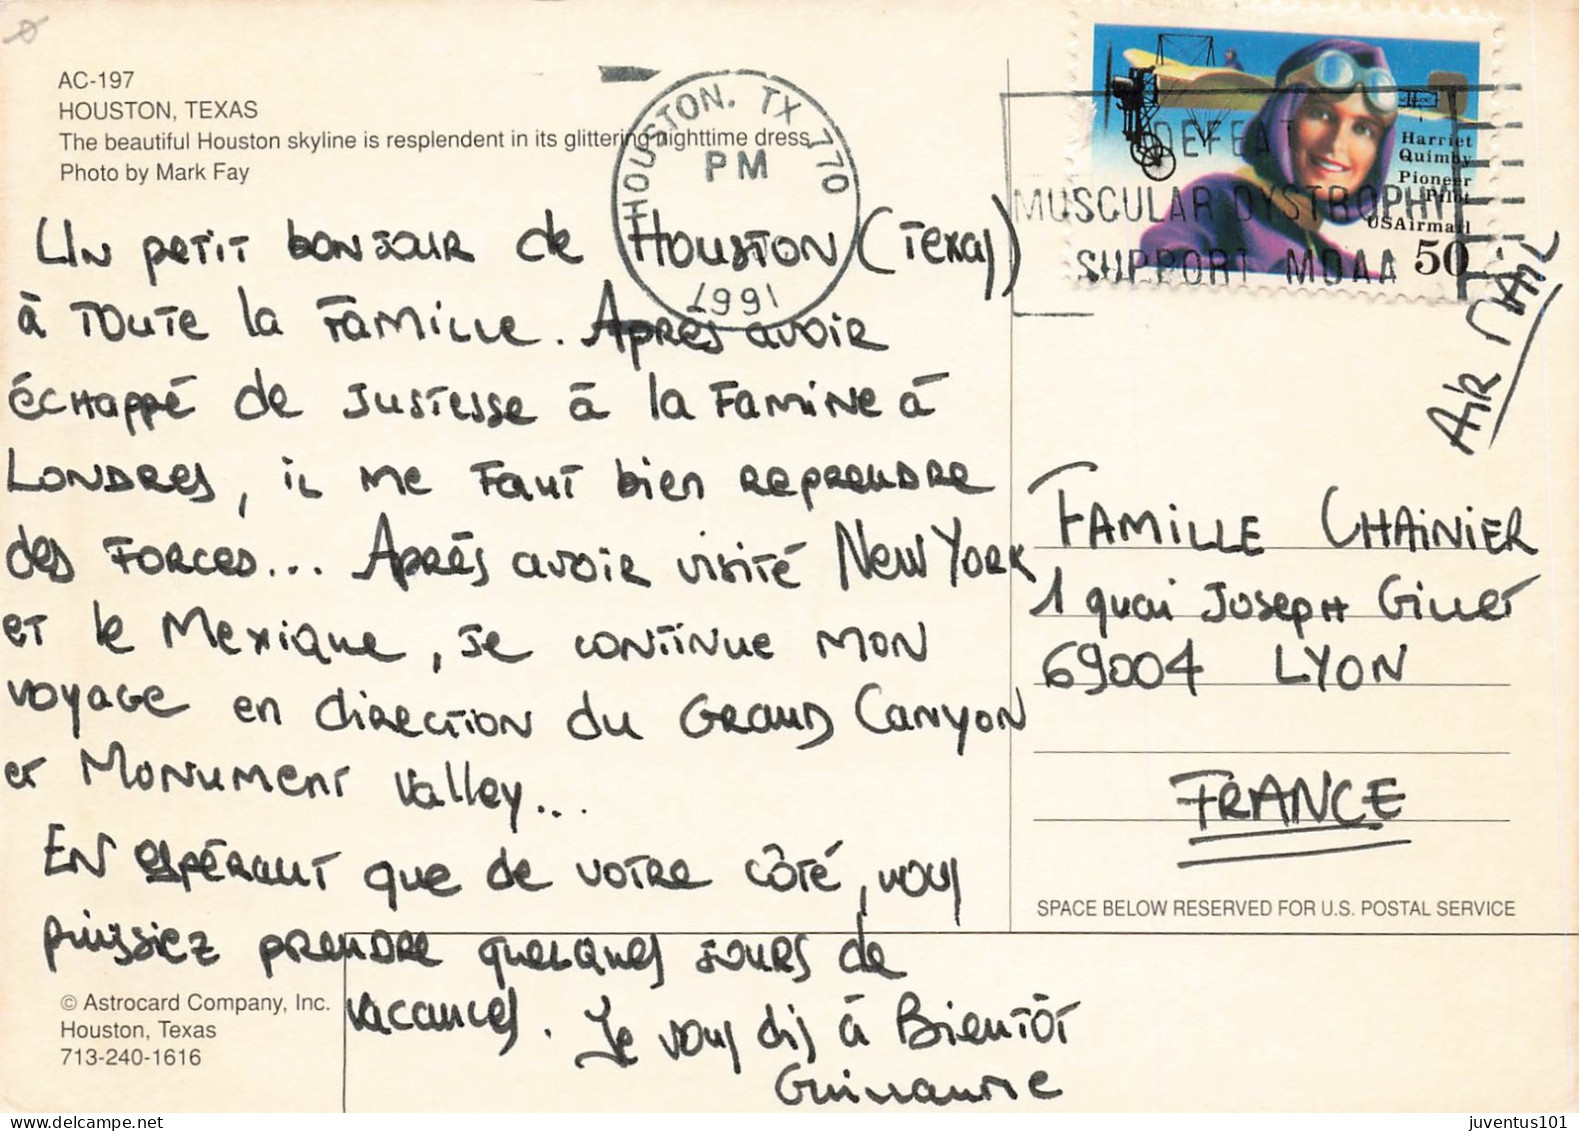 AC-197
HOUSTON, TEXAS
The beautiful Houston skyline is resplendent in its glittering nighttime dress.
Photo by Mark Fay
HOUSTON, TX 770
PM
1991
DEFEAT
MUSCULAR DYSTROPHY
SUPPORT MDAA
Harriet
Quimby
Pioneer
Pilot
USAirmail
50
AIR MAIL
Un petit bonjour de Houston (Texas)
à toute la famille. Après avoir
échappé de justesse à la famine à
Londres, il me faut bien reprendre
des forces... Après avoir visité New York
et le Mexique, je continue mon
voyage en direction du Grand Canyon
et Monument Valley...
En espérant que de votre côté, vous
puissiez prendre quelques jours de
vacances. Je vous dis à Bientôt
Guillaume
FAMILLE CHAINIER
1 quai Joseph Gillet
69004 LYON
FRANCE
SPACE BELOW RESERVED FOR U.S. POSTAL SERVICE
© Astrocard Company, Inc.
Houston, Texas
713-240-1616
juventus101